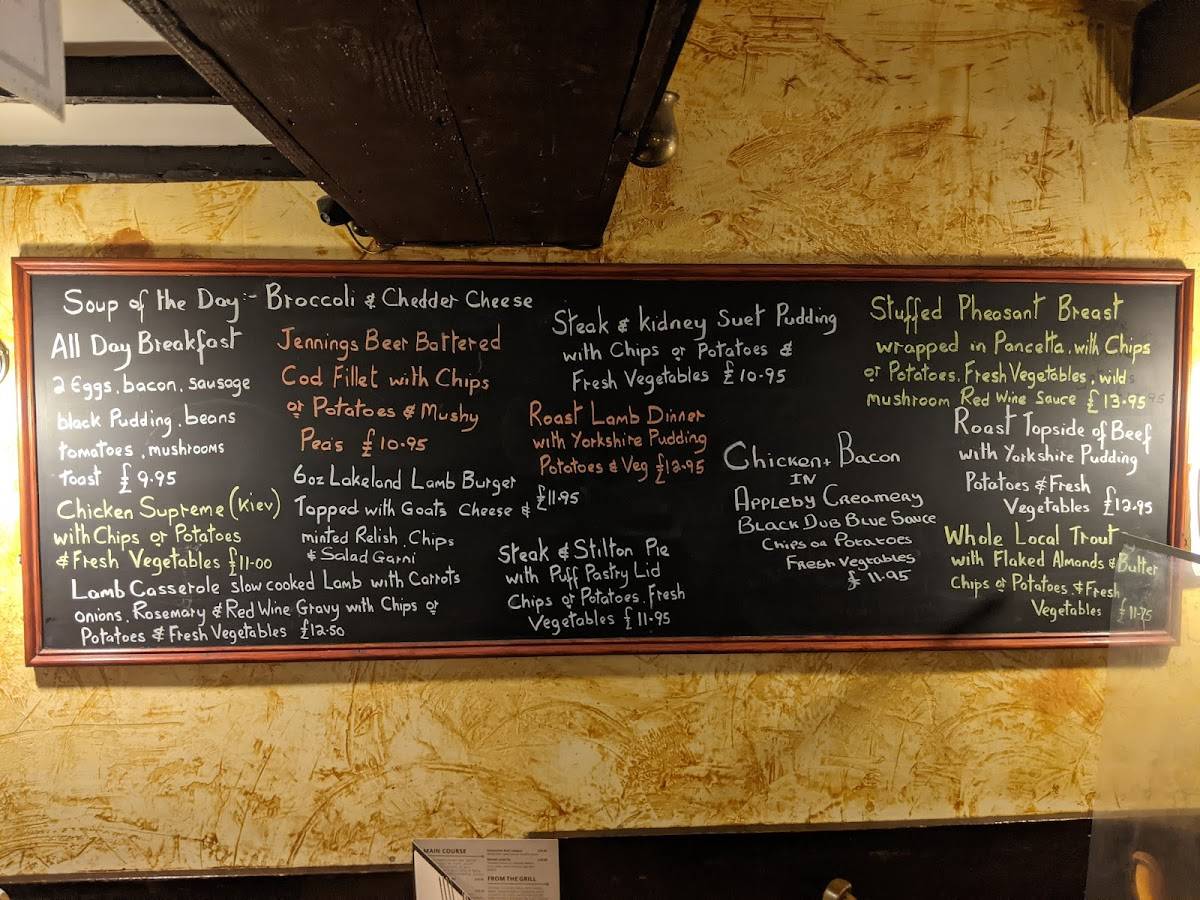 Soup of the Day:- Broccoli & Chedder Cheese
All Day Breakfast
2 Eggs, bacon, sausage
black Pudding, beans
tomatoes, mushrooms
toast £9.95
Chicken Supreme (Kiev)
with Chips or Potatoes
& Fresh Vegetables £11.00
Lamb Casserole slow cooked Lamb with Carrots
onions, Rosemary & Red Wine Gravy with Chips or
Potatoes & Fresh Vegetables £12.50
Jennings Beer Battered
Cod Fillet with Chips
or Potatoes & Mushy
Peas £10.95
6oz Lakeland Lamb Burger
Topped with Goats Cheese & £11.95
minted Relish, Chips
& Salad Garni
Steak & Kidney Suet Pudding
with Chips or Potatoes &
Fresh Vegetables £10.95
Roast Lamb Dinner
with Yorkshire Pudding
Potatoes & Veg £12.95
Steak & Stilton Pie
with Puff Pastry Lid
Chips or Potatoes, Fresh
Vegetables £11.95
Chicken + Bacon
IN
Appleby Creamery
Black Dub Blue Sauce
Chips or Potatoes
Fresh Vegetables
£11.95
Stuffed Pheasant Breast
wrapped in Pancetta, with Chips
or Potatoes, Fresh Vegetables, wild
mushroom Red Wine Sauce £13.95
Roast Topside of Beef
with Yorkshire Pudding
Potatoes & Fresh
Vegetables £12.95
Whole Local Trout
with Flaked Almonds & Butter
Chips or Potatoes & Fresh
Vegetables £11.75
MAIN COURSE
FROM THE GRILL